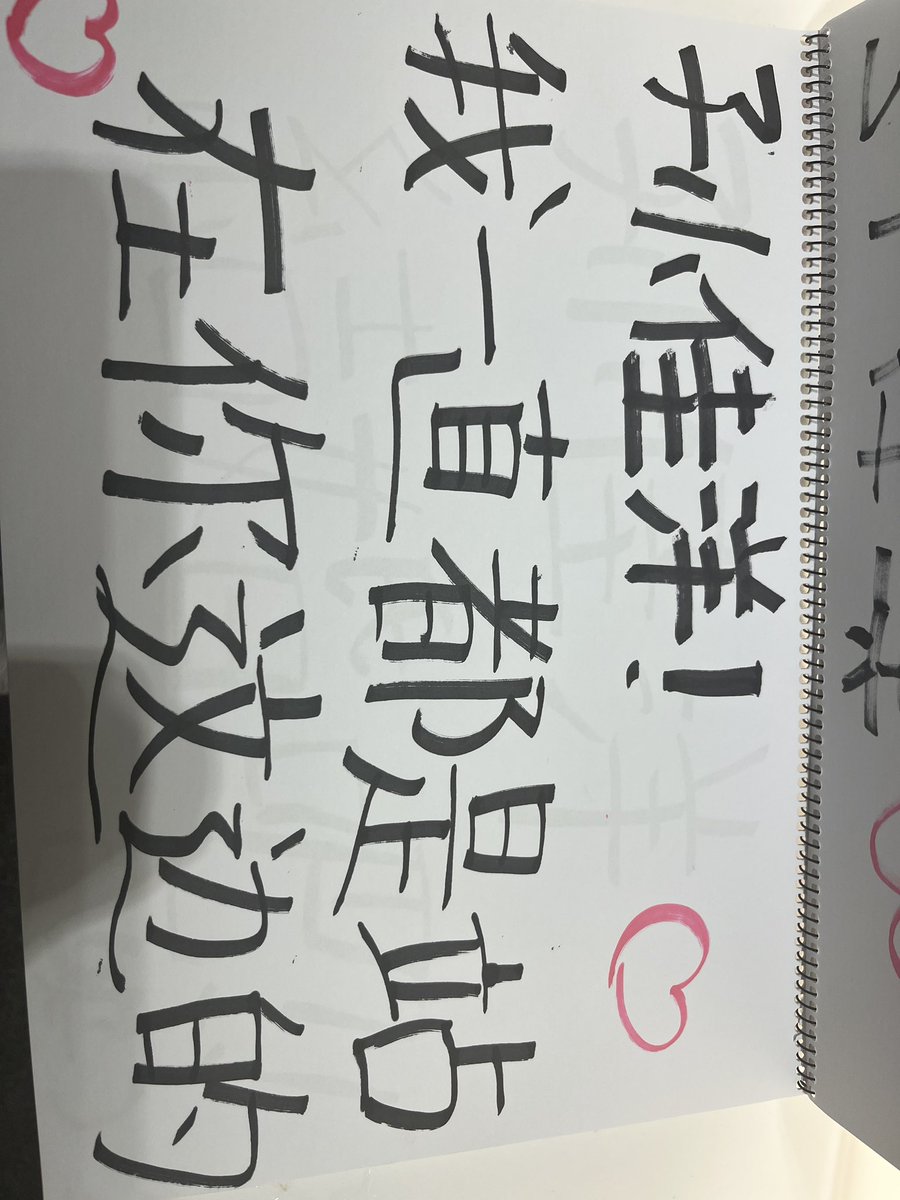 孙佳洋！
我一直都是站
在你这边的